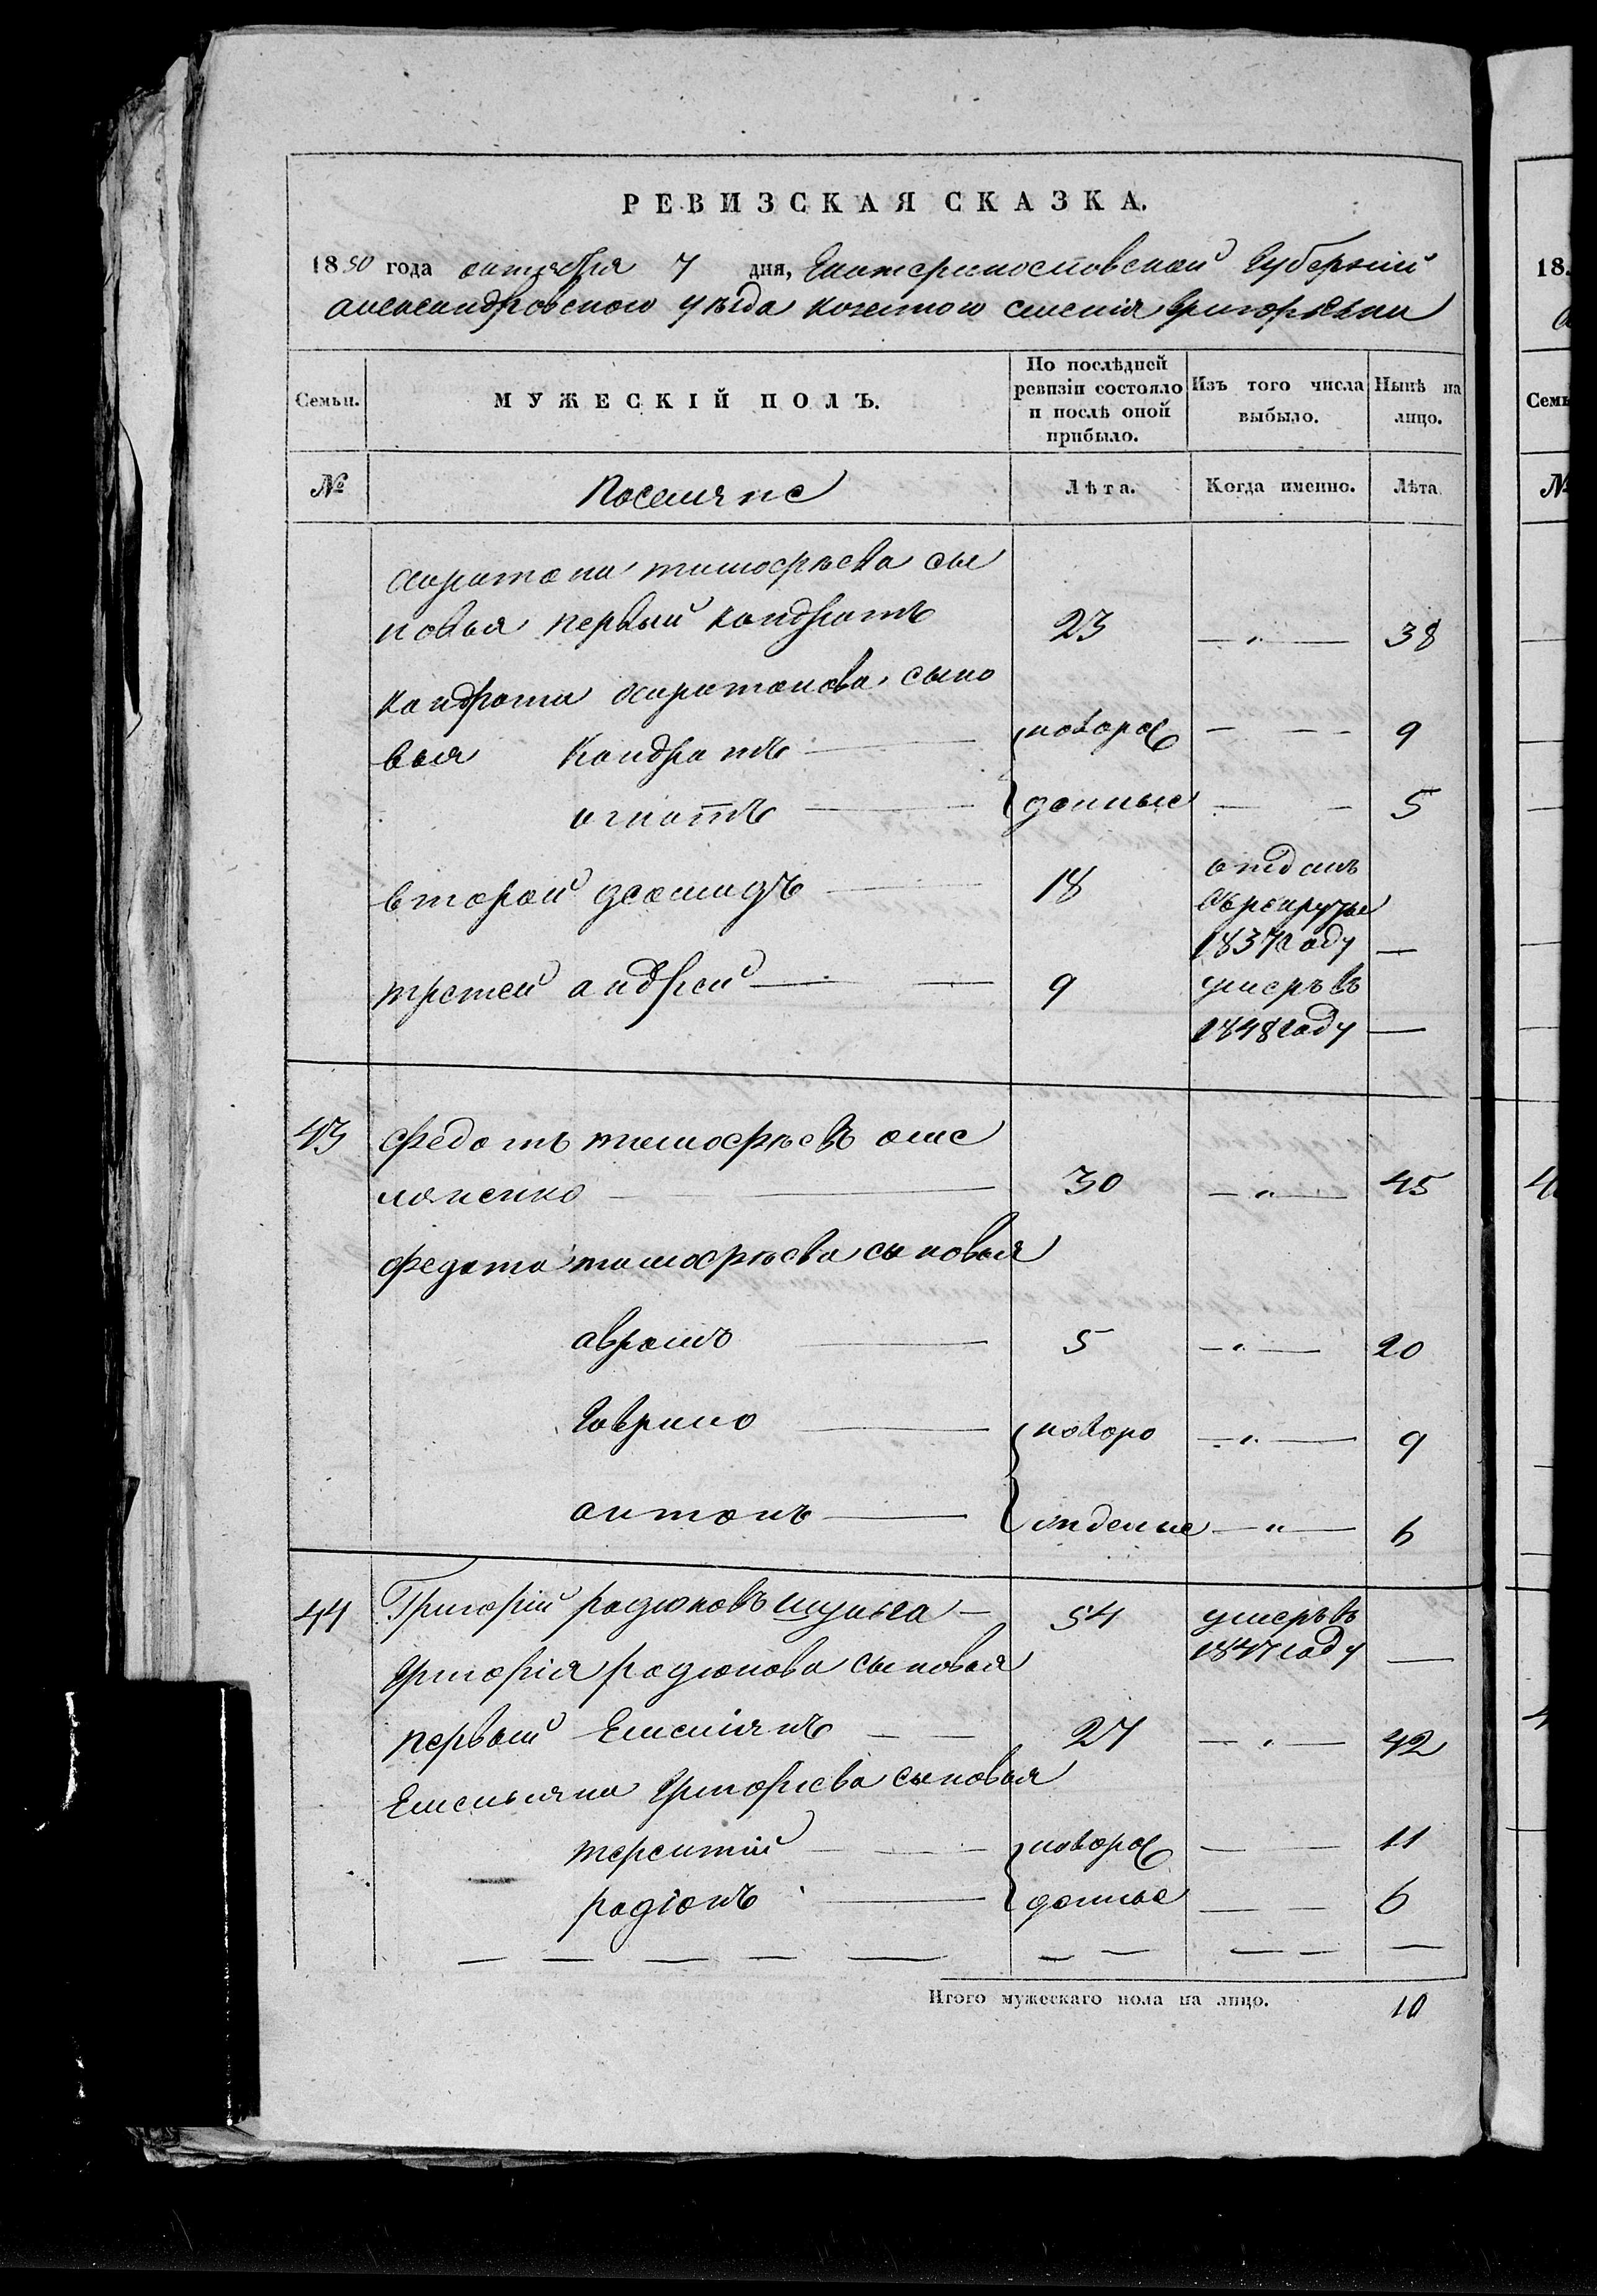 РЕВИЗСКАЯ СКАЗКА.
1850 года октября 7 дня, Екатеринославской Губерніи
александровского уѣзда казенного селенія григорьевки
Семьи. МУЖЕСКІЙ ПОЛЪ. По послѣдней ревизіи состояло и послѣ оной прибыло. Изъ того числа выбыло. Нынѣ на лицо.
№ Поселяне Лѣта. Когда именно. Лѣта
харитона тимофѣева сы
новья первый кондратъ 23 — „ — 38
кондрата харитонова сыно
вья Кондратъ — новорож — — 9
игнатъ — денные — — 5
второй деомидъ — 18 отданъ
въ рекруты
1837 году —
третей андрей — — 9 умеръ въ
1848 году —
43 федотъ тимофѣевъ оме
ляненко — 30 — „ — 45
федота тимофѣева сыновья
аврамъ — 5 — „ — 20
Гаврило — новоро — „ — 9
антонъ — жденые — „ — 6
44 Григорій радионовъ шульга — 54 умеръ въ
1847 году —
Григорія радионова сыновья
первый Емеліянъ — — 27 — „ — 42
Емельяна Григориева сыновья
терентій — — новорож — — 11
радіонъ — денные — — 6
— — — — — — — — — —
Итого мужескаго пола на лицо. 10
18
Семь
№